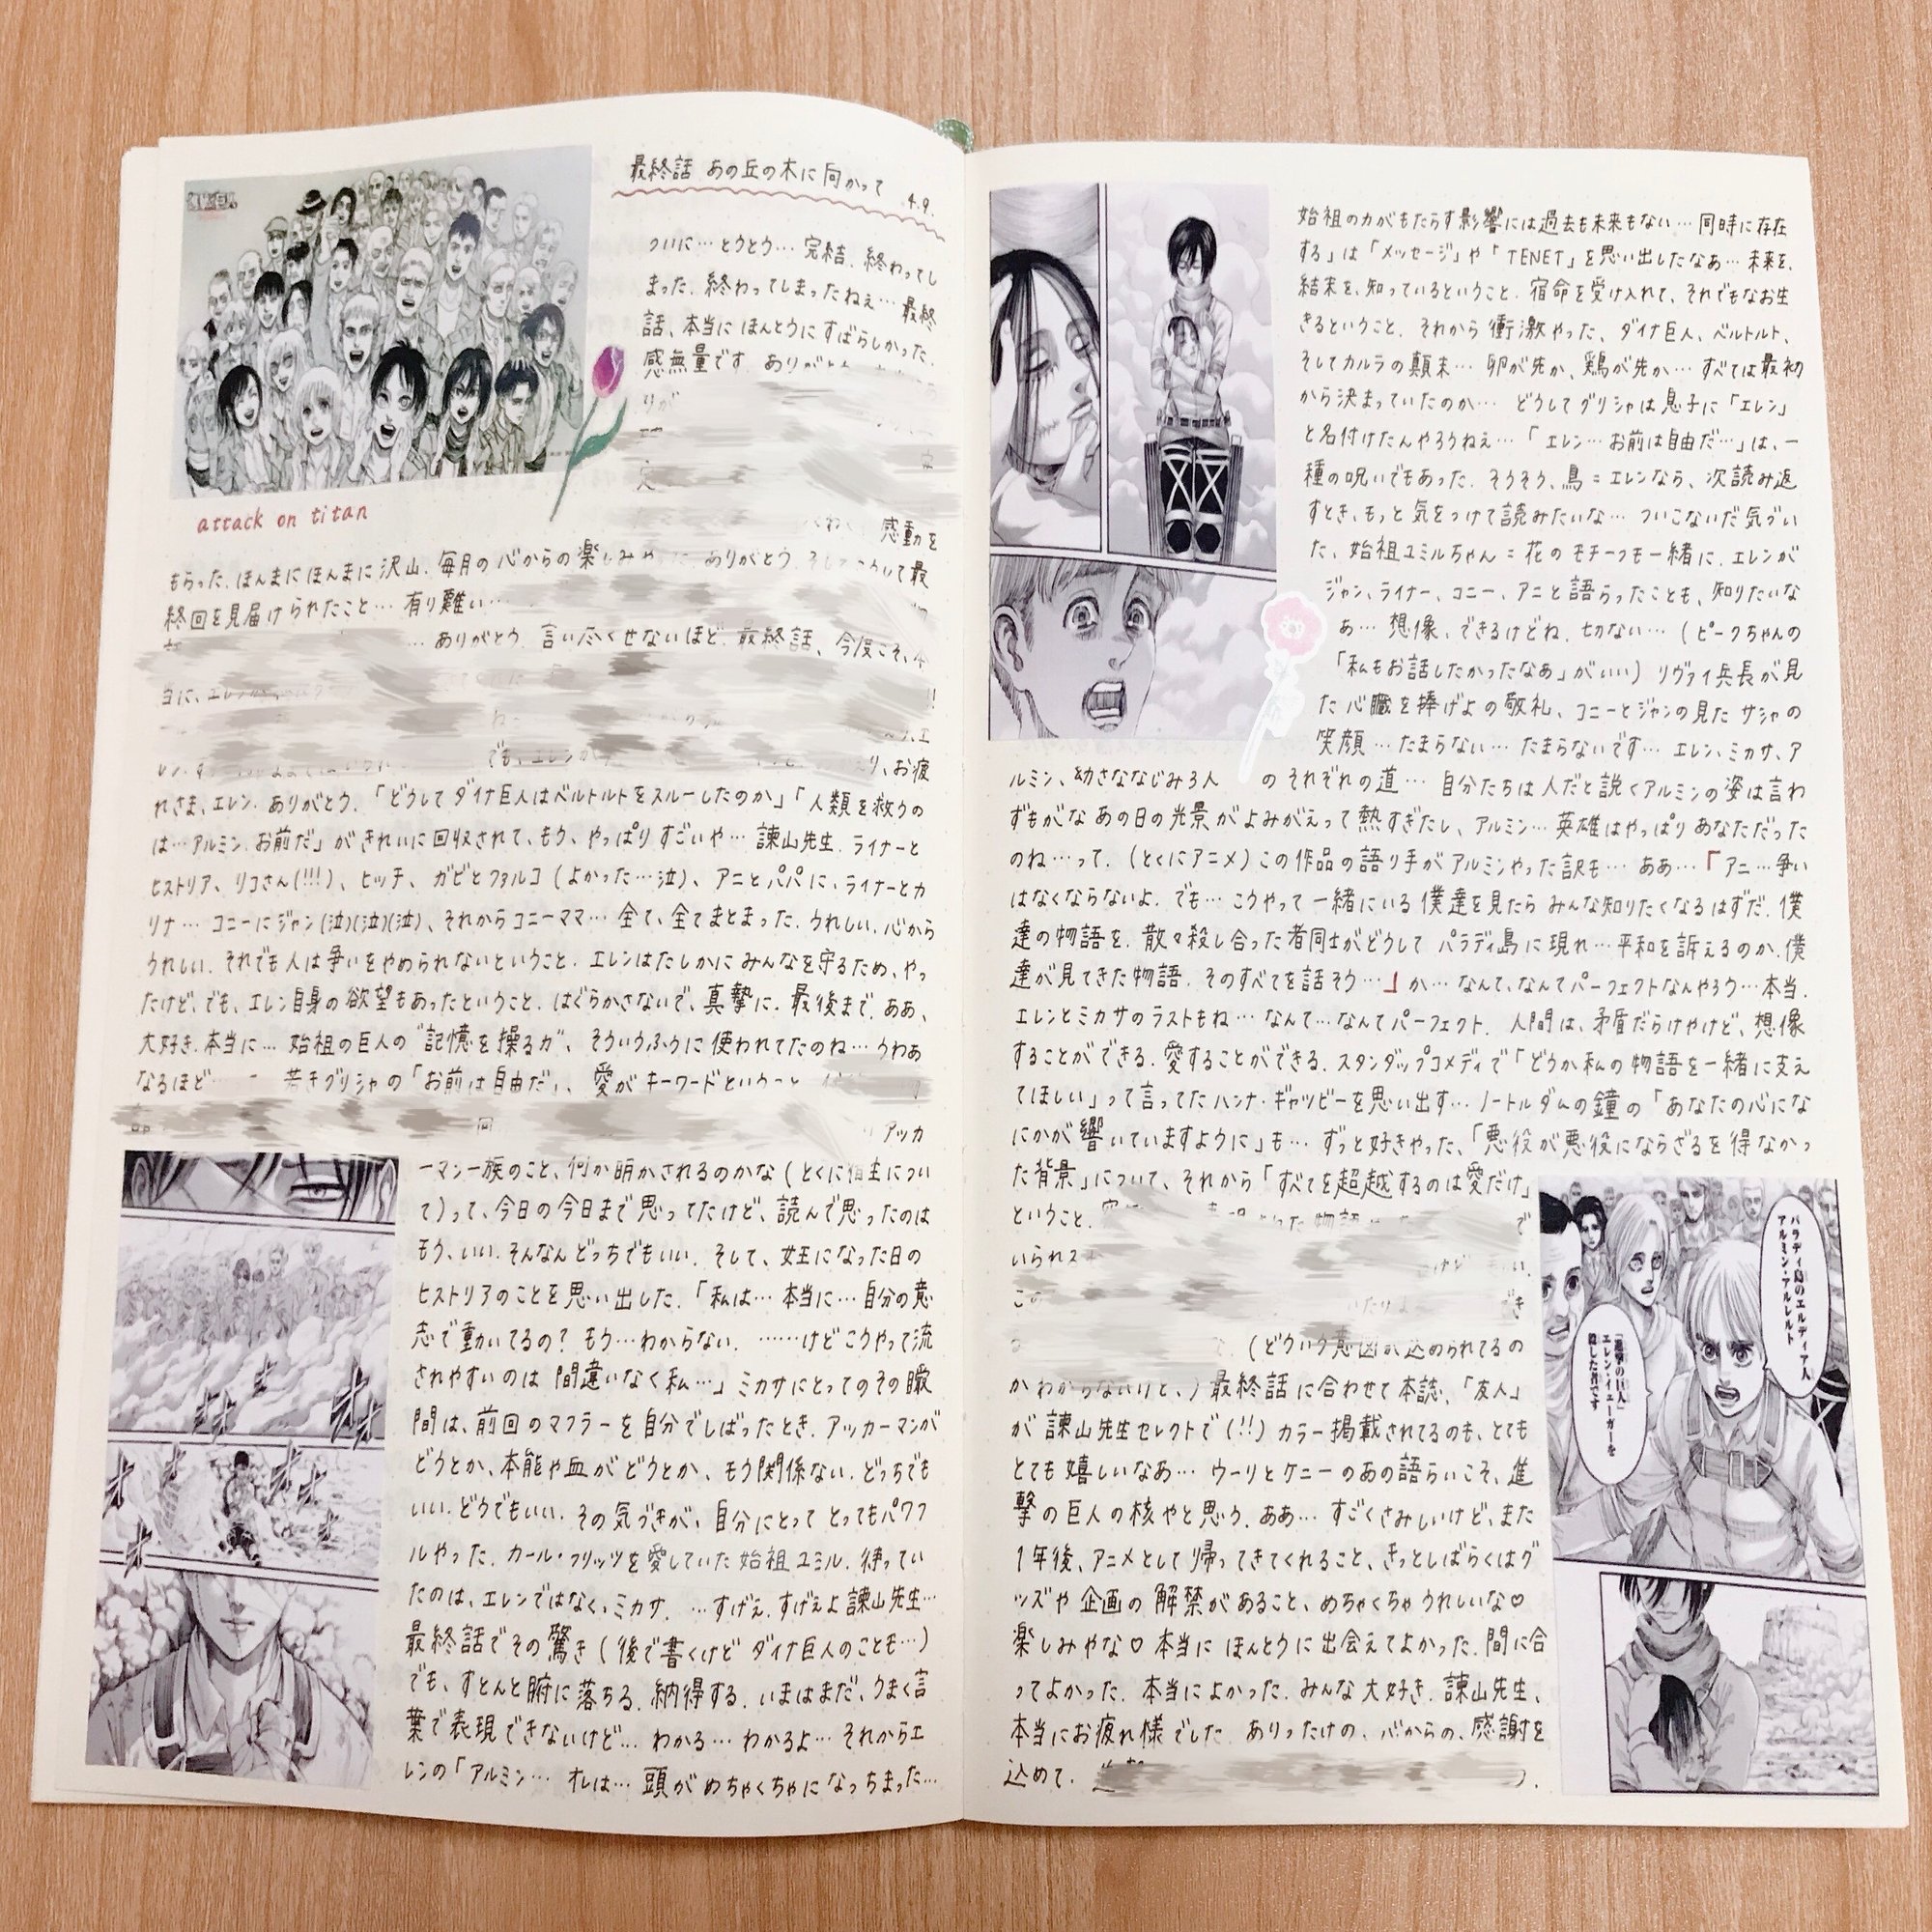 最終話 あの丘の木に向かって 4.9.
ついに…とうとう…完結. 終わってし
まった. 終わってしまったねぇ…最終
話、本当に ほんとうに すばらしかった.
感無量です.
attack on titan
感動を
もらった. ほんまに ほんまに 沢山. 毎月の 心からの 楽しみやった. ありがとう. そしてこうして最
終回を見届けられたこと… 有り難い…
… ありがとう. 言い尽くせないほど. 最終話、今度こそ、本
当に、エレン
お疲
れさま、エレン. ありがとう. 「どうして ダイナ巨人はベルトルトをスルーしたのか」「人類を救うの
は…アルミン. お前だ」が きれいに 回収されて、もう、やっぱり すごいや… 諫山先生. ライナーと
ヒストリア、リコさん(!!!)、ヒッチ、ガビとファルコ (よかった…泣)、アニとパパに、ライナーとカ
リナ… コニーにジャン(泣)(泣)(泣)、それからコニーママ… 全て、全てまとまった. うれしい. 心から
うれしい. それでも人は争いをやめられないということ. エレンはたしかに みんなを守るため、やっ
たけど、でも、エレン自身の欲望もあったということ. はぐらかさないで、真摯に. 最後まで. ああ、
大好き. 本当に… 始祖の巨人の“記憶を操る力”、そういうふうに使われてたのね… うわあ
なるほど… 若きグリシャの「お前は自由だ」、愛がキーワードという
アッカ
ーマン一族のこと、何か明かされるのかな (とくに 宿主につい
て)って、今日の今日まで思ってたけど、読んで思ったのは
もう、いい. そんなん どっちでもいい. そして、女王になった日の
ヒストリアのことを思い出した. 「私は… 本当に… 自分の意
志で動いてるの? もう…わからない. ……けど こうやって流
されやすいのは 間違いなく私…」ミカサにとってのその瞬
間は、前回のマフラーを自分でしばったとき. アッカーマンが
どうとか、本能や血が どうとか、もう関係ない. どっちでも
いい. どうでもいい. その気づきが、自分にとって とってもパワフ
ルやった. カール・フリッツを愛していた始祖ユミル. 待ってい
たのは、エレンではなく、ミカサ. …すげえ. すげえよ諫山先生…
最終話でその驚き (後で書くけど ダイナ巨人のことも…)
でも、すとんと腑に落ちる. 納得する. いまはまだ、うまく言
葉で表現できないけど… わかる… わかるよ… それからエ
レンの「アルミン… オレは… 頭がめちゃくちゃになっちまった…
始祖の力がもたらす影響には過去も未来もない…同時に存在
する」は「メッセージ」や「TENET」を思い出したなあ…未来を、
結末を、知っているということ. 宿命を受け入れて、それでもなお生
きるということ. それから衝激やった、ダイナ巨人、ベルトルト、
そしてカルラの顛末… 卵が先か、鶏が先か… すべては最初
から決まっていたのか… どうしてグリシャは息子に「エレン」
と名付けたんやろうねえ…「エレン…お前は自由だ…」は、一
種の呪いでもあった. そうそう、鳥=エレンなら、次読み返
すとき、もっと気をつけて読みたいな… ついこないだ気づい
た、始祖ユミルちゃん=花のモチーフも一緒に. エレンが
ジャン、ライナー、コニー、アニと語らったことも、知りたいな
あ… 想像、できるけどね. 切ない… (ピークちゃんの
「私もお話したかったなあ」がいい) リヴァイ兵長が見
た心臓を捧げよの敬礼、コニーとジャンの見た サシャの
笑顔 … たまらない… たまらないです… エレン、ミカサ、ア
ルミン、幼ななじみ3人 のそれぞれの道… 自分たちは人だと説くアルミンの姿は言わ
ずもがな あの日の光景がよみがえって熱すぎたし、アルミン… 英雄はやっぱり あなただった
のね…って. (とくにアニメ)この作品の語り手がアルミンやった訳も… ああ…「アニ…争い
はなくならないよ. でも… こうやって 一緒にいる僕達を見たら みんな知りたくなるはずだ. 僕
達の物語を. 散々殺し合った者同士がどうして パラディ島に現れ…平和を訴えるのか. 僕
達が見てきた物語. そのすべてを話そう…」か… なんて、なんてパーフェクトなんやろう…本当.
エレンとミカサのラストもね… なんて…なんてパーフェクト. 人間は、矛盾だらけやけど、想像
することができる. 愛することができる. スタンダップコメディで「どうか私の物語を一緒に支え
てほしい」って言ってた ハンナ・ギャツビーを思い出す… ノートルダムの鐘の「あなたの心にな
にかが響いていますように」も… ずっと好きやった、「悪役が悪役にならざるを得なかっ
た背景」について、それから「すべてを超越するのは愛だけ」
ということ.
(どういう意図が込められてるの
かわからないけど、) 最終話に合わせて本誌、「友人」
が 諫山先生セレクトで(!!)カラー掲載されてるのも、とても
とても嬉しいなあ… ウーリとケニーのあの語らいこそ、進
撃の巨人の核やと思う. ああ… すごくさみしいけど、また
1年後、アニメとして帰ってきてくれること、きっとしばらくはグ
ッズや企画の解禁があること、めちゃくちゃうれしいな♡
楽しみやな♡ 本当に ほんとうに 出会えてよかった. 間に合
ってよかった. 本当によかった. みんな 大好き. 諫山先生、
本当にお疲れ様でした. ありったけの、心からの、感謝を
込めて.
パラディ島のエルディア人
アルミン・アルレルト
「進撃の巨人」
エレン・イェーガーを
殺した者です